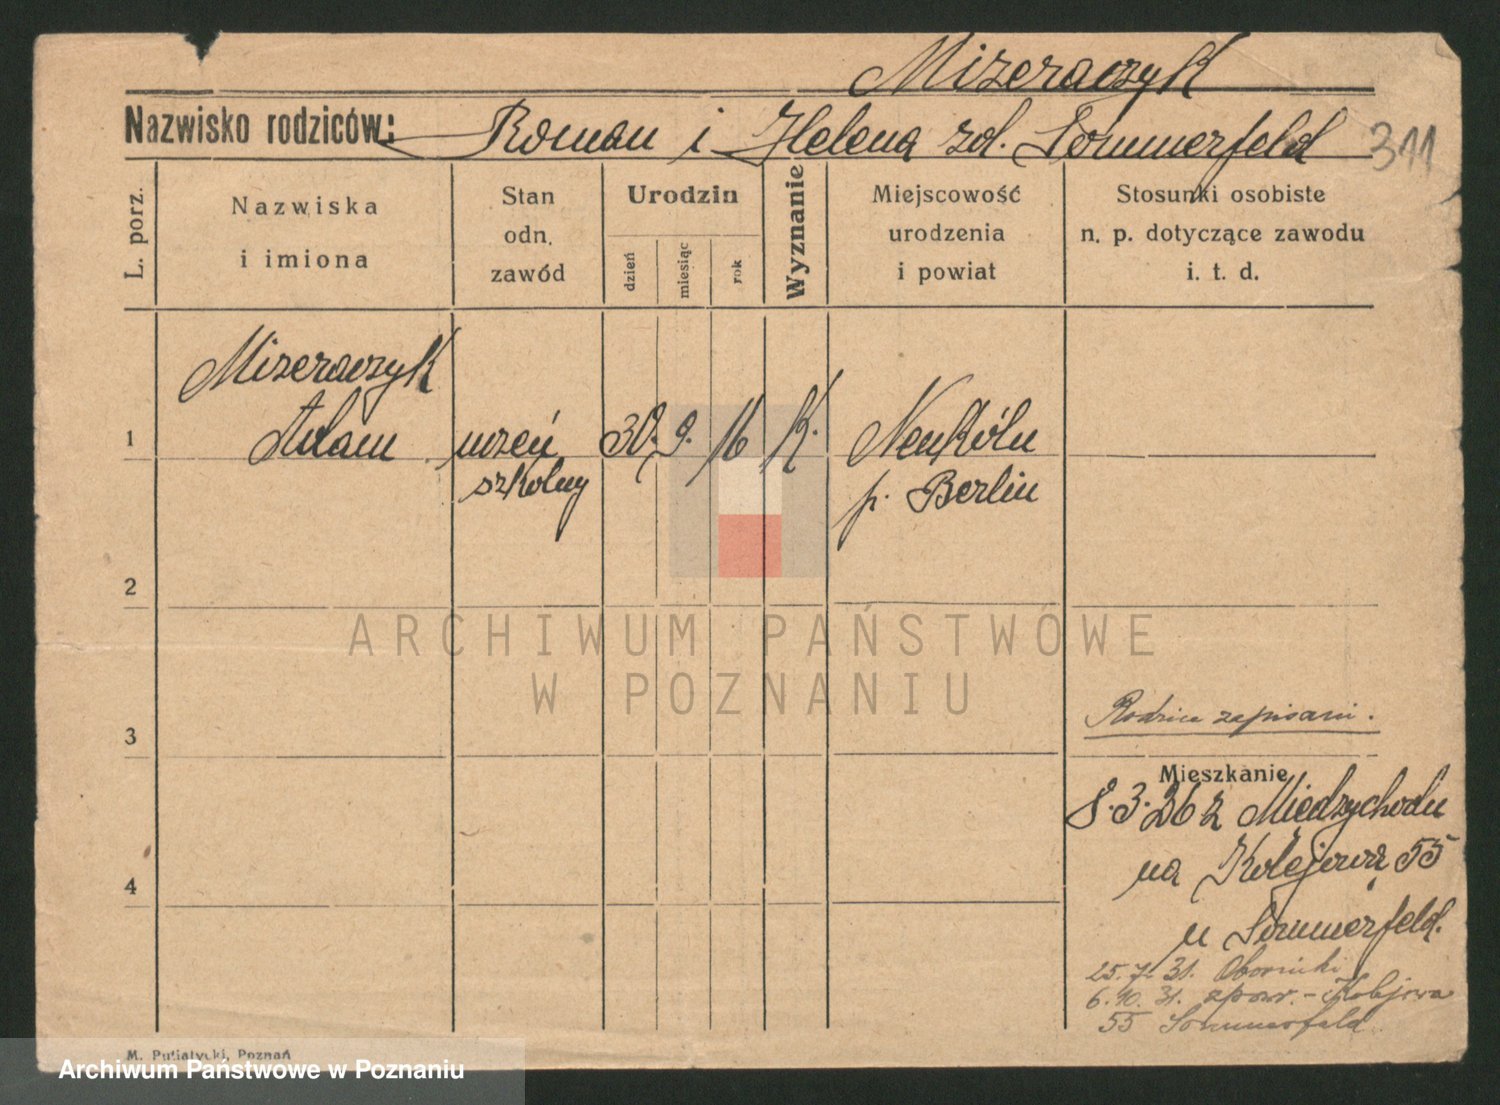 Mizeraczyk
Nazwisko rodziców: Roman i Helena zd. Sommerfeld 311
L. porz.
Nazwiska
i imiona
Stan
odn.
zawód
Urodzin
dzień
miesiąc
rok
Wyznanie
Miejscowość
urodzenia
i powiat
Stosunki osobiste
n. p. dotyczące zawodu
i. t. d.
Mizeraczyk
1 Adam uczeń 30. 9. 16 K. Neukóln
szkolny p. Berlin
2
ARCHIWUM PAŃSTWOWE
W POZNANIU
Rodzice zapisani.
3
Mieszkanie
8.3.26 z Miedzychodu
na Kolejową 55
4
u Sommerfeld.
25.7. 31. Oborniki
6.10. 31. zpow. - Kolejowa
55 Sommerfeld
M. Putiatycki, Poznań
Archiwum Państwowe w Poznaniu